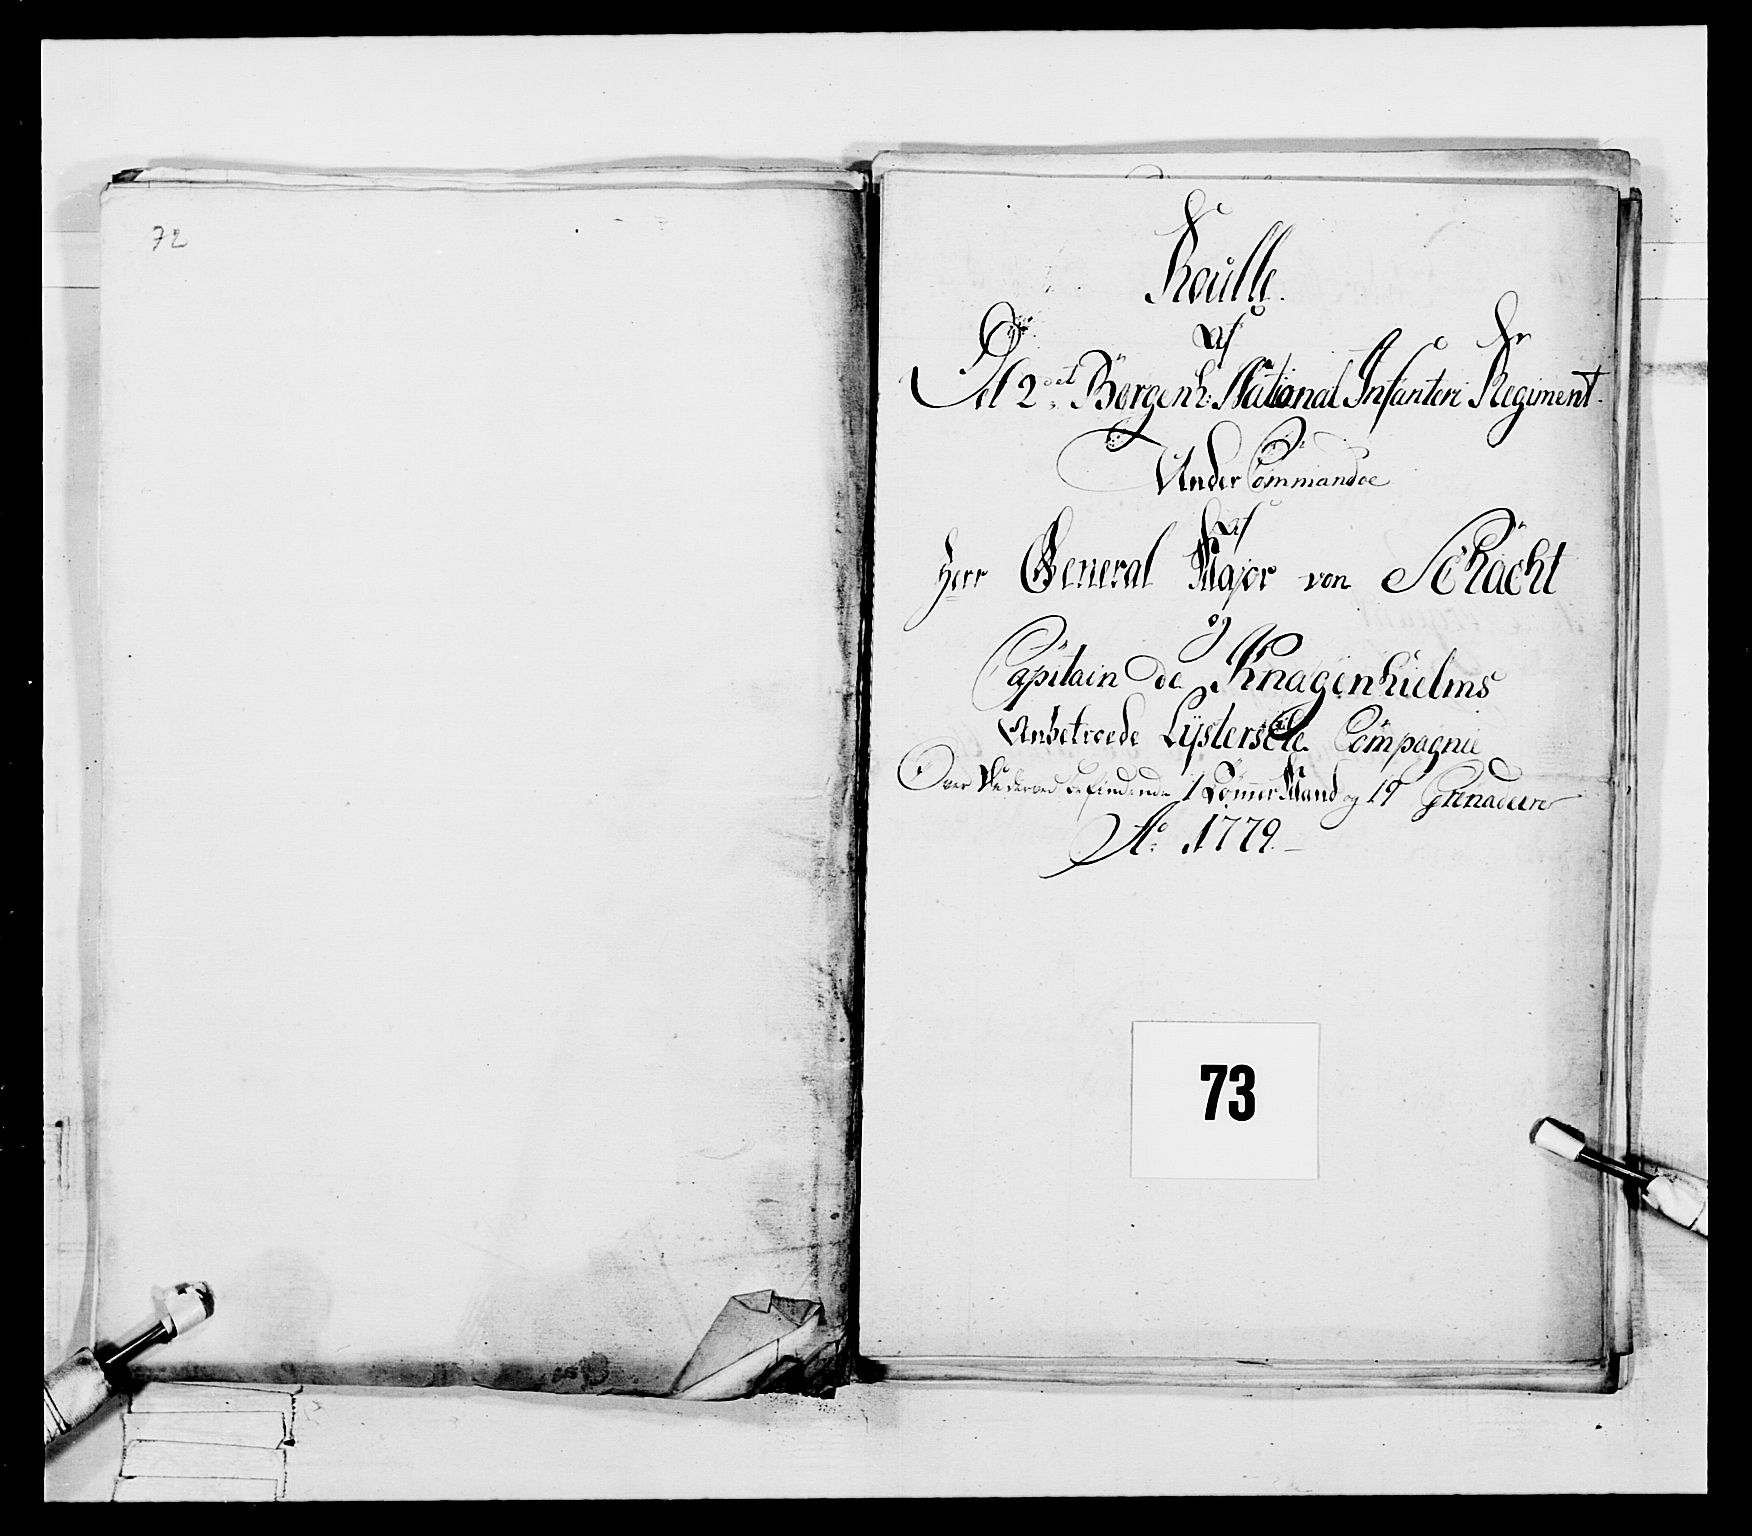 72
Roulle
af
Det 2det Bergenh: National Infanteri Regiment
Under Commandoe
af
Herr General Major von Schacht
og
Capitain de Knagenhielms
Anbetroede Lysterske Compagnie
Over Nederved befindende 1 Tømmer Mand og 19 Grenadeerer
Ao 1779
73